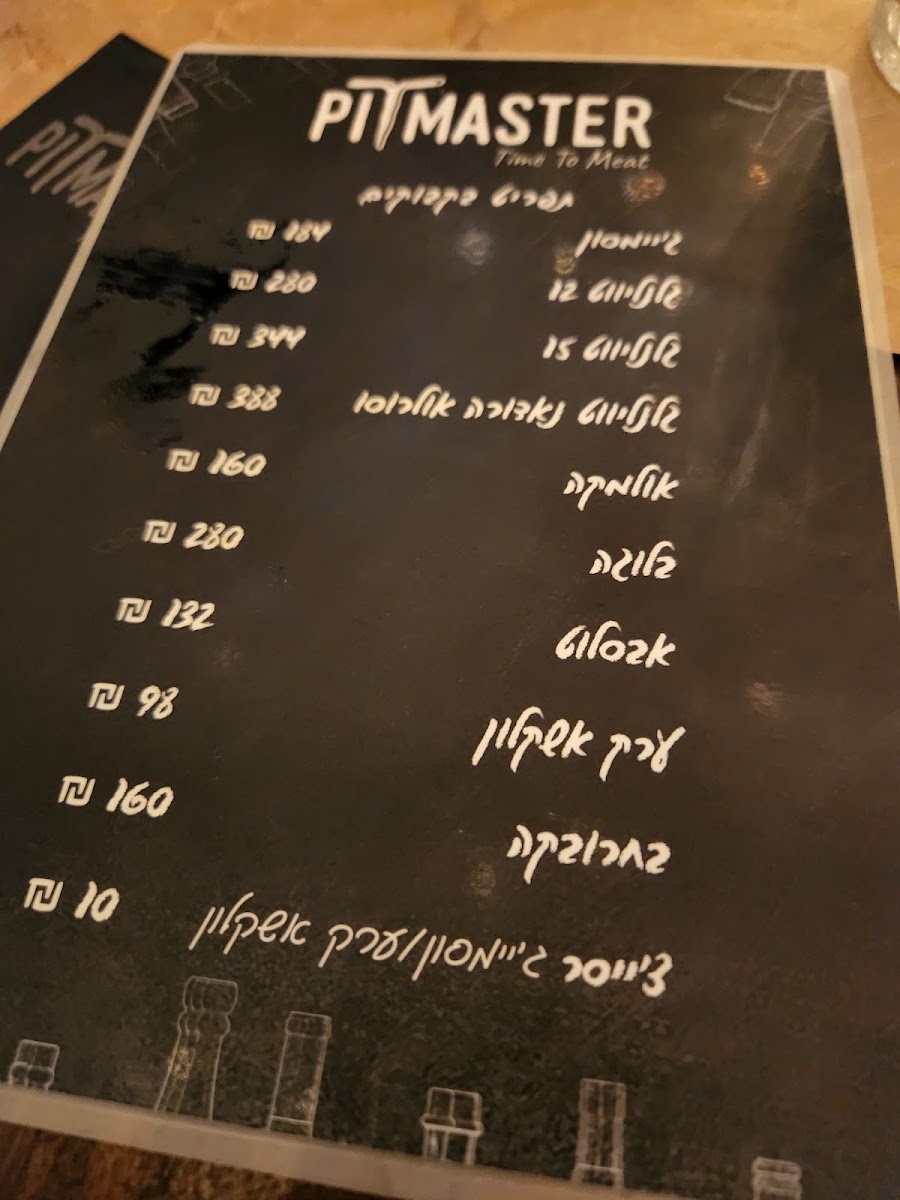 PITMASTER
Time To Meat
תפריט בקבוקים
ג'יימסון 184 ₪
גלנליווט 12 280 ₪
גלנליווט 15 344 ₪
גלנליווט נאדורה אולרוסו 388 ₪
אולמקה 160 ₪
בלוגה 280 ₪
אבסלוט 132 ₪
ערק אשקלון 98 ₪
בחרובקה 160 ₪
צ'ייסר ג'יימסון/ערק אשקלון 10 ₪
PITMA